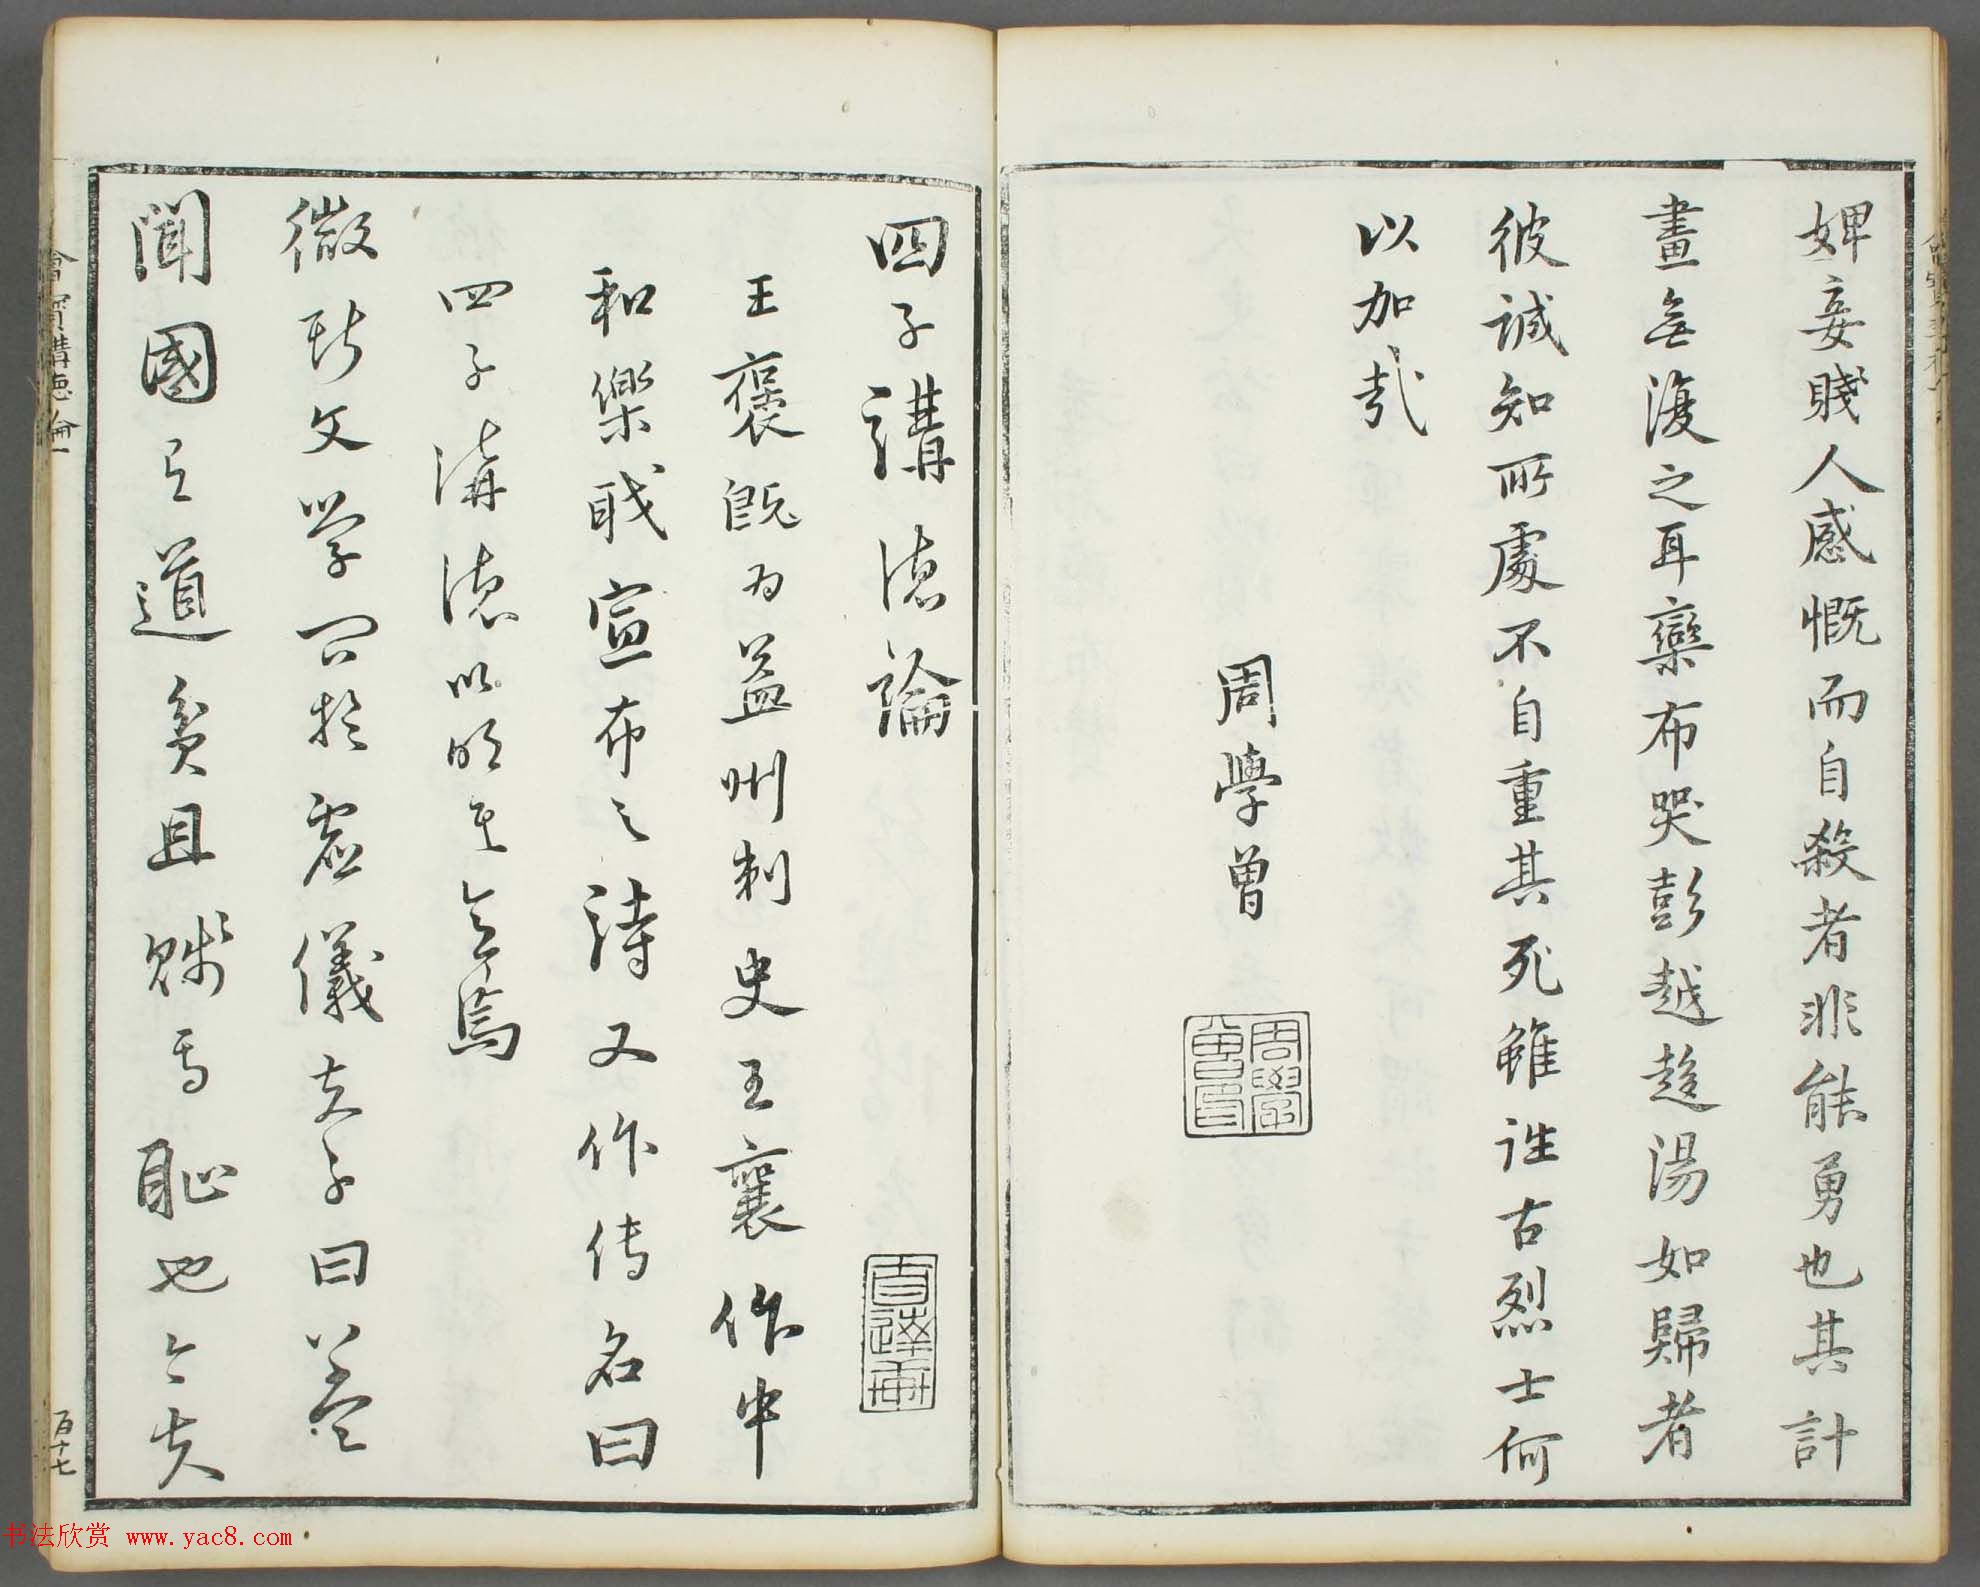 婢妾賤人感慨而自殺者非能勇也其計
畫無復之耳欒布哭彭越趨湯如歸者
彼誠知所處不自重其死雖往古烈士何
以加哉
周學曾
周學曾印
四子講德論
王褒既为益州刺史王襄作中
和樂職宣布之詩又作传名曰
四子講德以明其意焉
微斯文学問於虚儀夫子曰蓋
聞國有道貧且賤焉耻也今夫
講德論一
百十七
书法欣赏 www.yac8.com